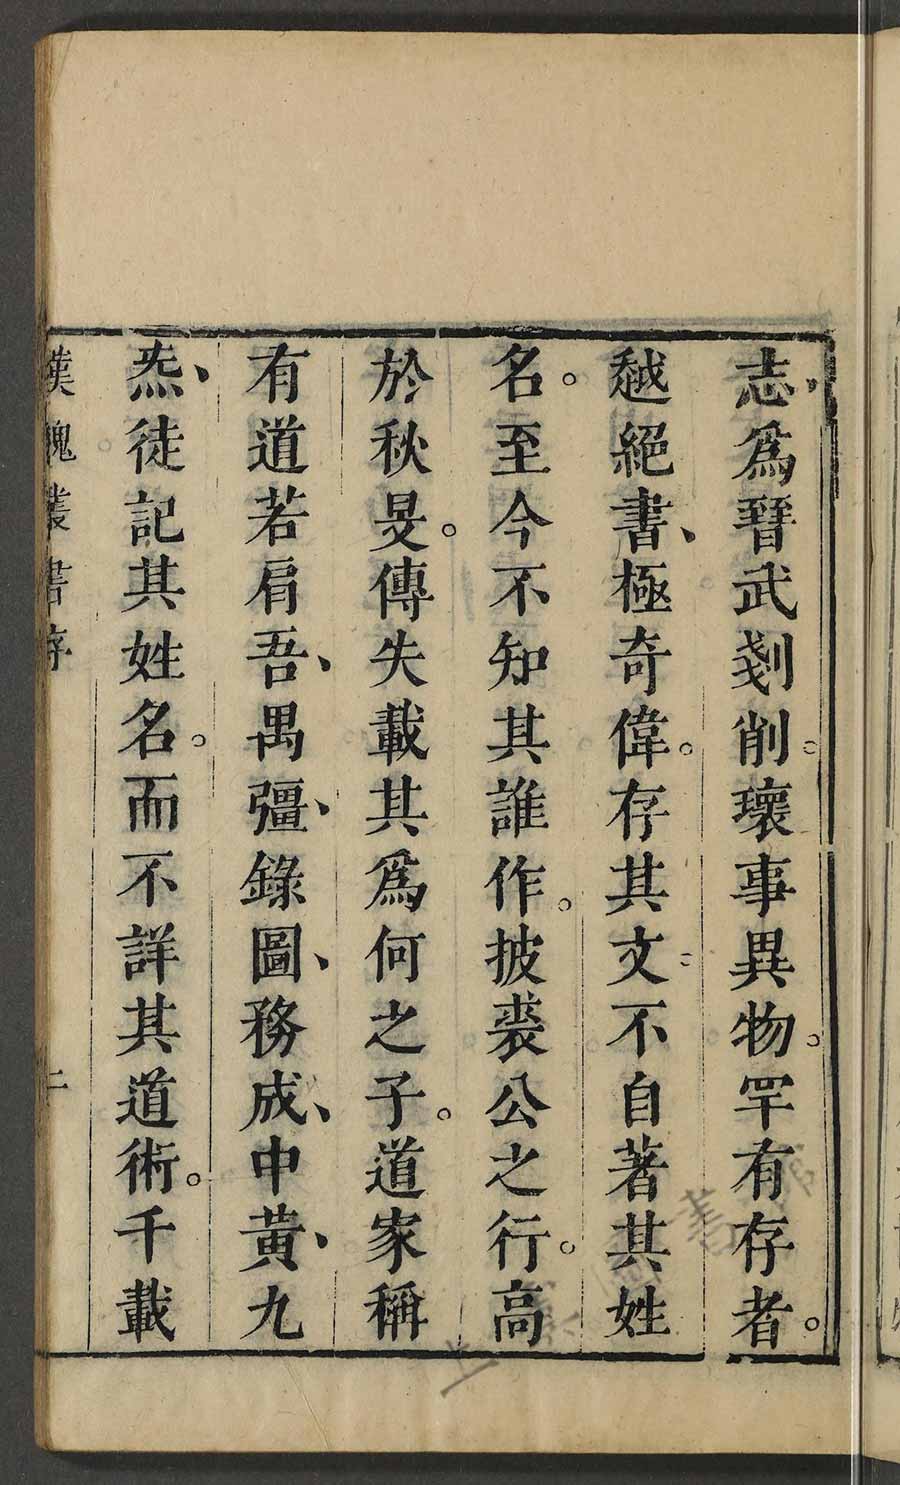 志爲晉武剗削。壞事異物。罕有存者。
越絕書、極奇偉。存其文不自著其姓
名。至今不知其誰作。披裘公之行。高
於秋旻。傳失載其爲何之子。道家稱
有道若肩吾、禺彊、錄圖、務成、中黃、九
炁、徒記其姓名。而不詳其道術。千載
漢魏叢書序
二